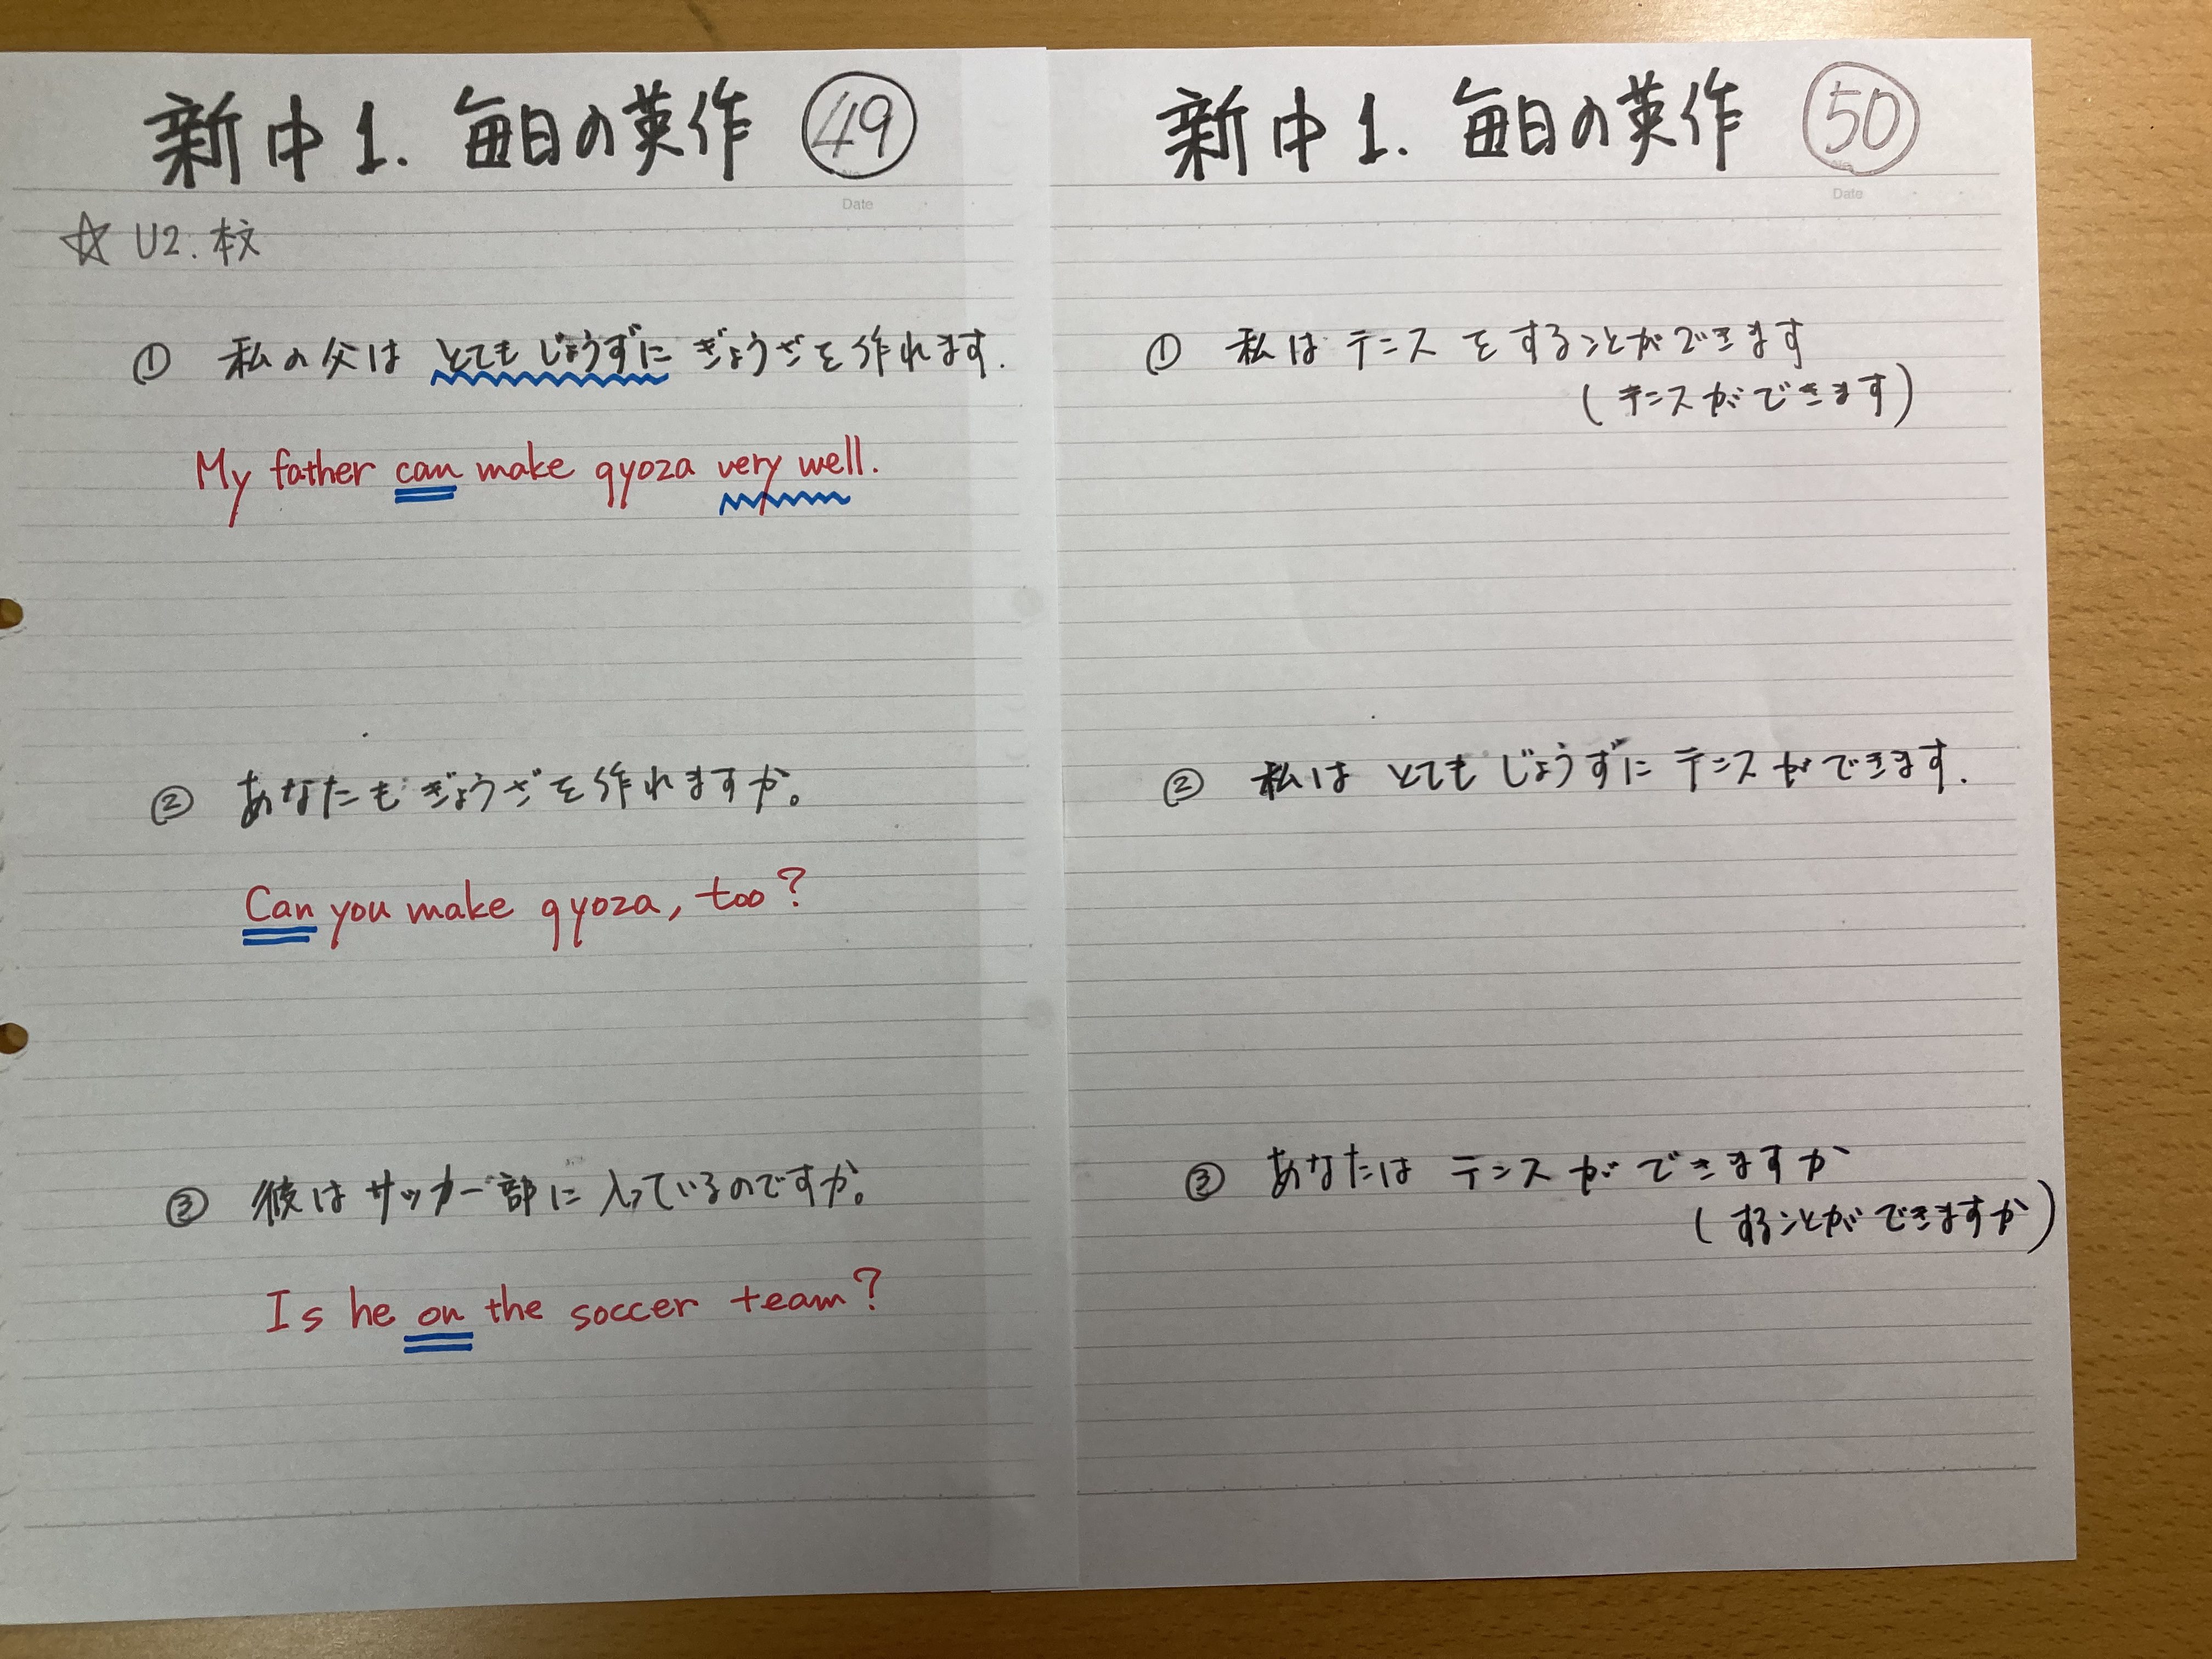 新中1. 毎日の英作 49
Date
☆ U2. 本文
① 私の父は とてもじょうずに ぎょうざを作れます.
My father can make gyoza very well.
② あなたもぎょうざを作れますか。
Can you make gyoza, too?
③ 彼はサッカー部に入っているのですか。
Is he on the soccer team?
新中1. 毎日の英作 50
No.
Date
① 私は テニス をすることができます
(テニスができます)
② 私は とても じょうずに テニスができます.
③ あなたは テニスが できますか
(することができますか)